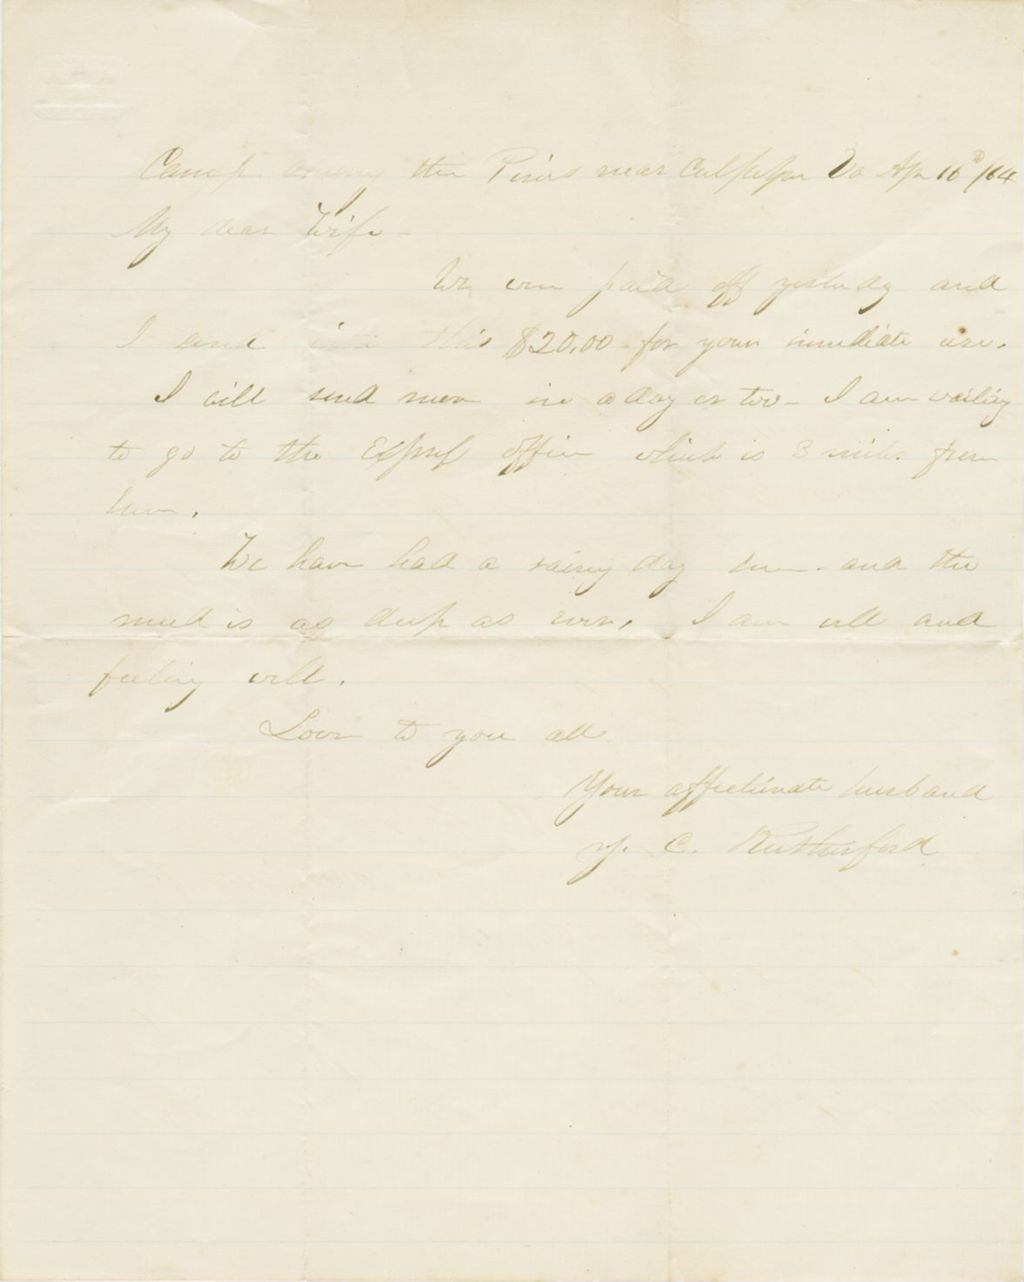 Camp among the Pines near Culpeper Va Apr 16th/64
My dear Wife -
We were paid off yesterday and
I send in this $20.00 for your imediate use.
I will send more in a day or two - I am waiting
to go to the Express office which is 3 miles from
here.
We have had a rainy day here - and the
mud is as deep as ever. I am well and
feeling well.
Love to you all
Your affectionate husband
J. C. Rutherford